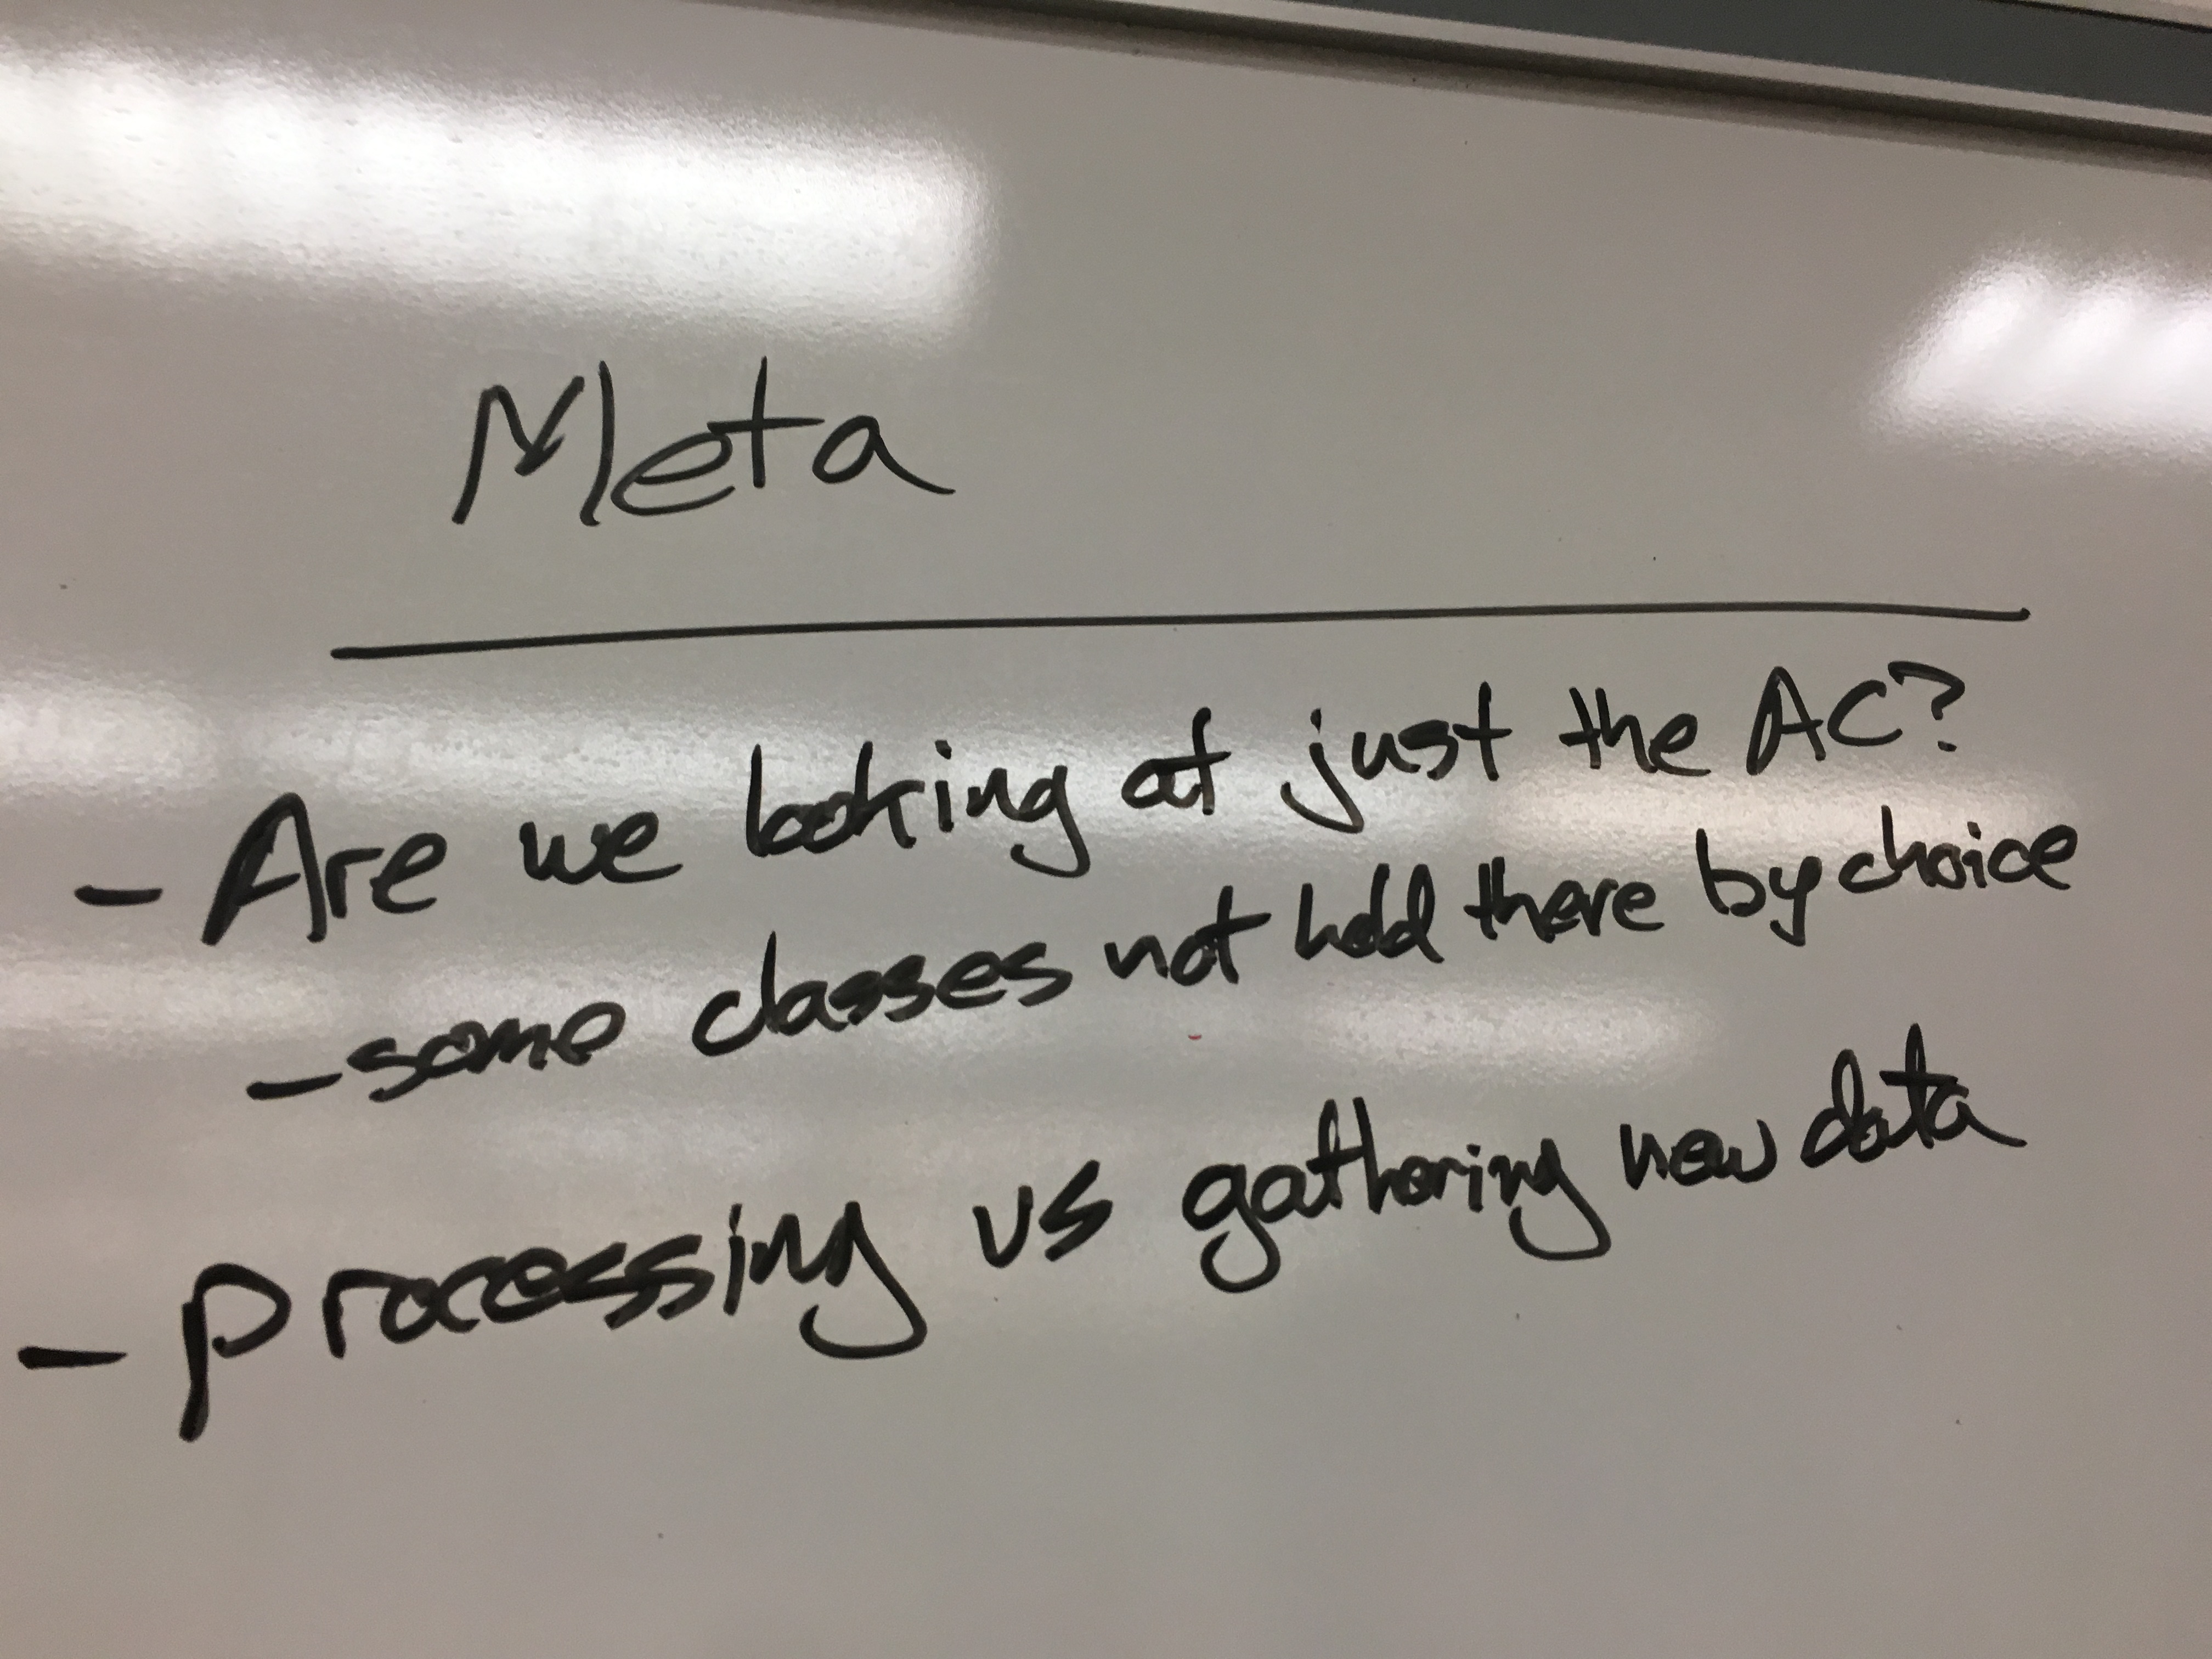 Meta
- Are we looking at just the AC?
- some classes not held there by choice
- processing vs gathering new data